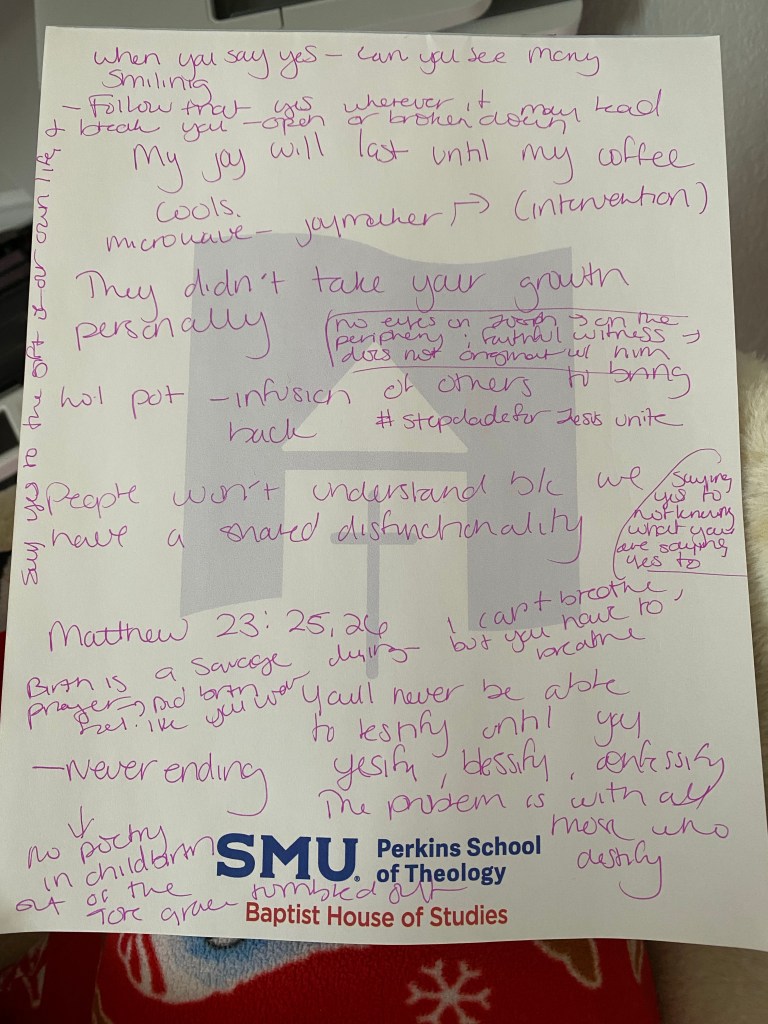 when you say yes – can you see mary
smiling
– Follow that yes wherever it may lead
& break you – open or broken down
My joy will last until my coffee
cools.
microwave – joymaker → (intervention)
They didn't take your growth
personally
no eyes on Joseph → on the
periphery, faithful witness →
does not original w/ him
hot pot – infusion of others to bring
back
# stepdadeforJesus unite
People won't understand b/c we
have a shared disfunctionality
saying
yes to
not knowing
what you
are saying
yes to
say yes to the gift of our own life
Matthew 23: 25, 26
I can't breathe,
but you have to
breathe
Birth is a savage
prayer → Did birth
feel like you were
dying
Yaull never be able
to testify until you
yesify, blessify, confessify
– Never ending
The problem is with all
those who
destify
no poetry
in childbirth
out of the
tumbled out
SMU® Perkins School
of Theology
Baptist House of Studies